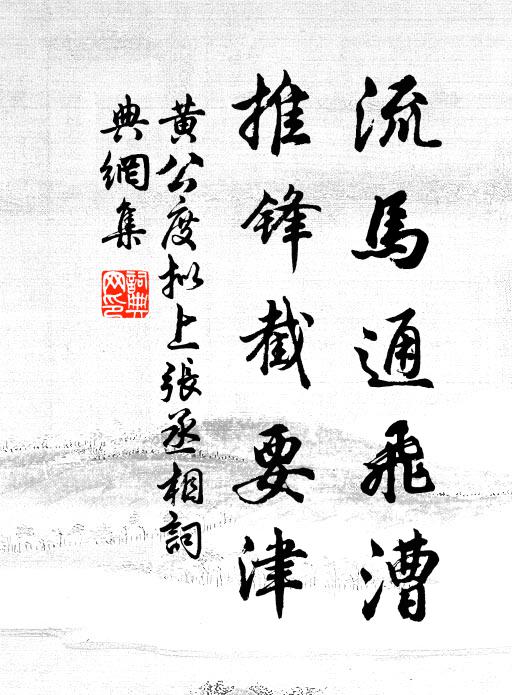 流馬通飛漕
推鋒截要津
黄公度拟上張丞相詞
典網集
詞典网印